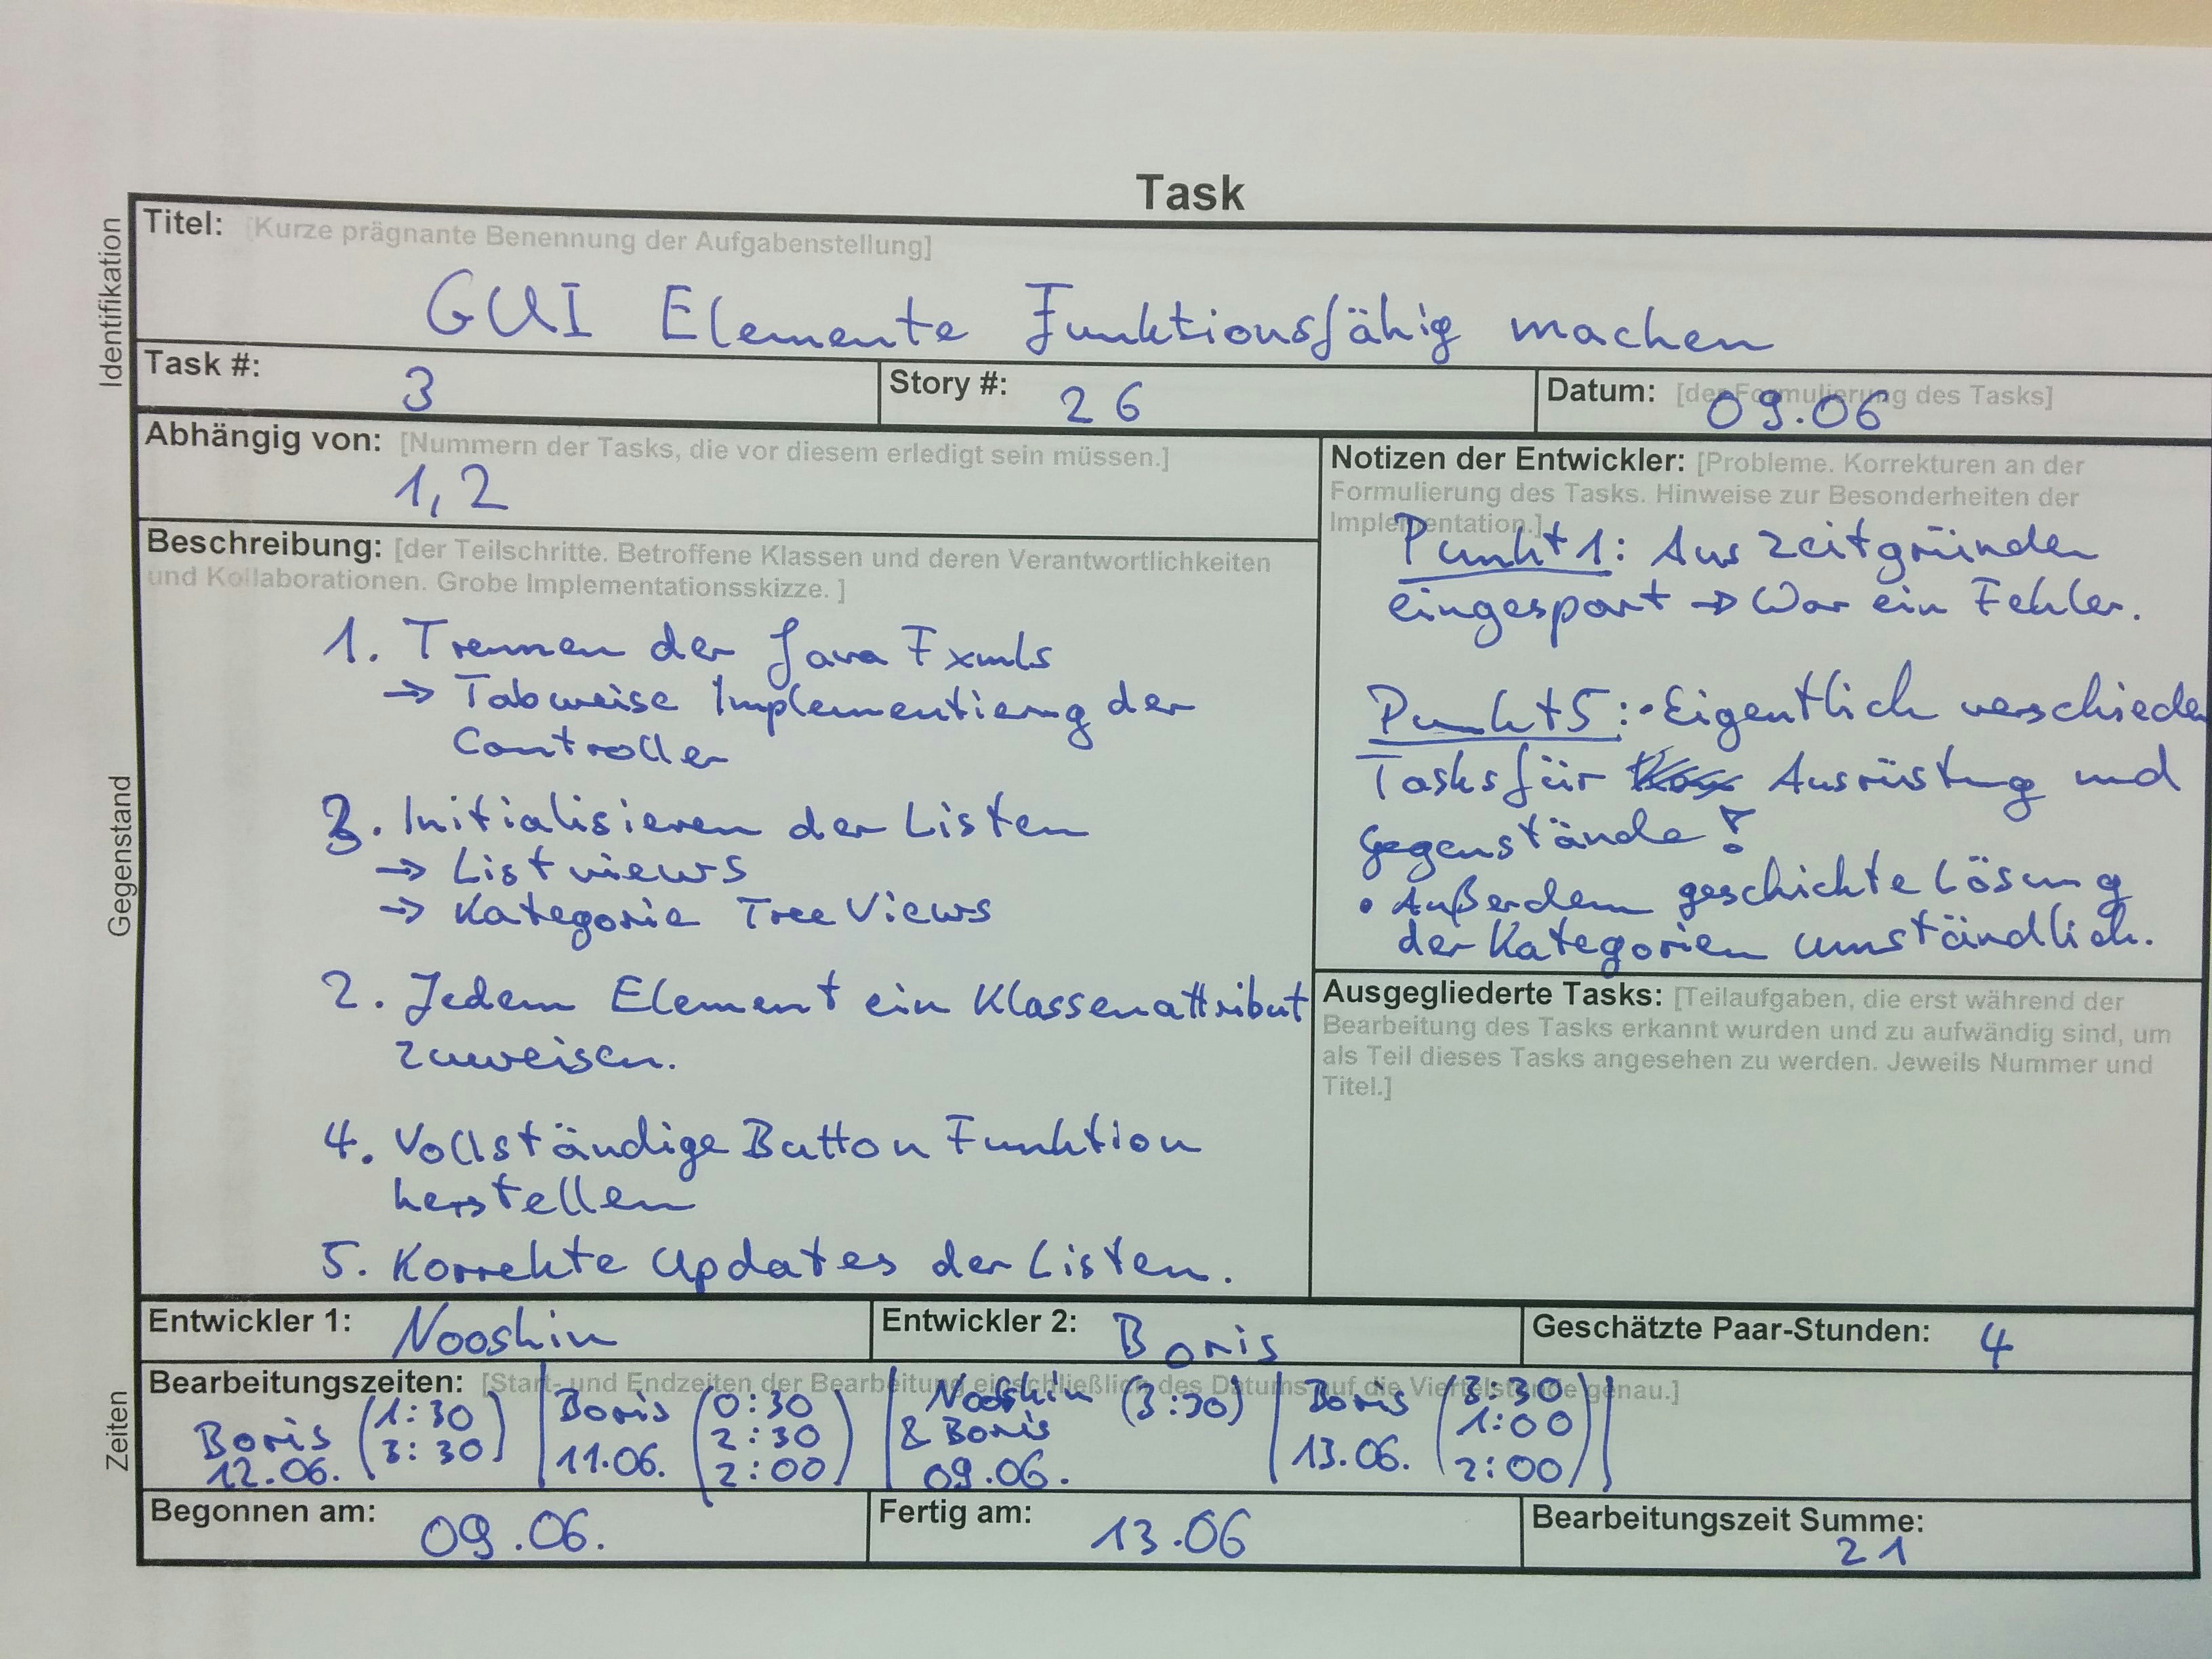 Task
Identifikation
Titel: [Kurze prägnante Benennung der Aufgabenstellung]
GUI Elemente Funktionsfähig machen
Task #: 3
Story #: 26
Datum: [der Formulierung des Tasks] 09.06
Abhängig von: [Nummern der Tasks, die vor diesem erledigt sein müssen.]
1,2
Gegenstand
Beschreibung: [der Teilschritte. Betroffene Klassen und deren Verantwortlichkeiten
und Kollaborationen. Grobe Implementationsskizze. ]
1. Trennen der Java Fxmls
→ Tabweise Implementierung der
Controller
3. Initialisieren der Listen
→ Listviews
→ Kategorie TreeViews
2. Jedem Element ein Klassenattribut
zuweisen.
4. Vollständige Button Funktion
herstellen
5. Korrekte Updates der Listen.
Notizen der Entwickler: [Probleme. Korrekturen an der
Formulierung des Tasks. Hinweise zur Besonderheiten der
Implementation.]
Punkt 1: Aus Zeitgründen
eingespart → War ein Fehler.
Punkt 5: • Eigentlich verschieden
Tasks für Ausrüstung und
Gegenstände!
• Außerdem geschickte Lösung
der Kategorien umständlich.
Ausgegliederte Tasks: [Teilaufgaben, die erst während der
Bearbeitung des Tasks erkannt wurden und zu aufwändig sind, um
als Teil dieses Tasks angesehen zu werden. Jeweils Nummer und
Titel.]
Zeiten
Entwickler 1: Nooshin
Entwickler 2: Boris
Geschätzte Paar-Stunden: 4
Bearbeitungszeiten: [Start- und Endzeiten der Bearbeitung einschließlich des Datums auf die Viertelstunde genau.]
Boris (1:30
12.06. 3:30)
Boris (0:30
2:30
11.06. 2:00)
Nooshin (3:30)
& Boris
09.06.
Boris (3:30
1:00
13.06. 2:00)
Begonnen am: 09.06.
Fertig am: 13.06
Bearbeitungszeit Summe:
21